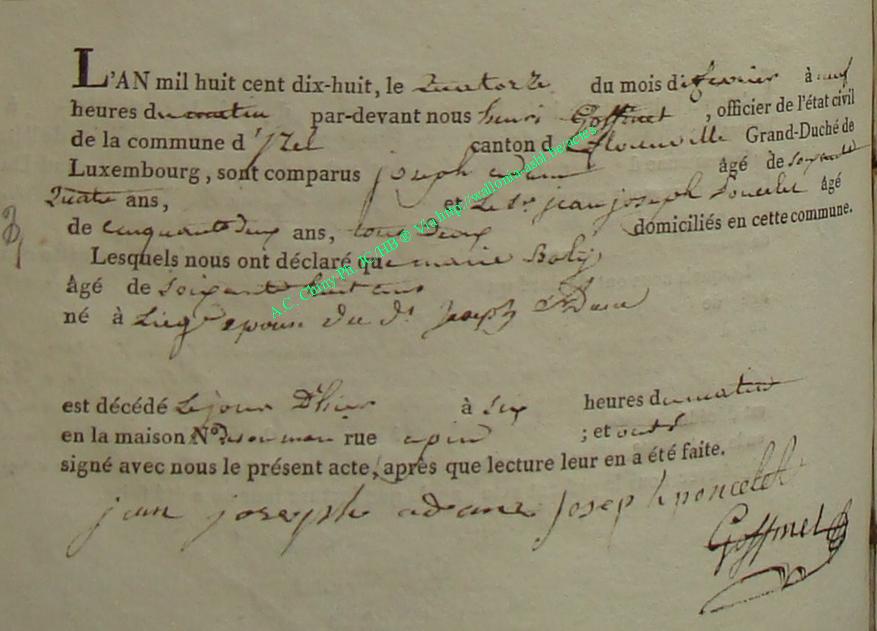 L'AN mil huit cent dix-huit, le quatorze du mois de fevrier à neuf
heures du matin par-devant nous henri Goffinet, officier de l'état civil
de la commune d'Izel canton de florenville Grand-Duché de
Luxembourg, sont comparus joseph adam âgé de soixante
quatre ans, et le Sr jean joseph Poncelet âgé
de cinquante deux ans, tous deux domiciliés en cette commune.
Lesquels nous ont déclaré que marie Boly
âgé de soixante huit ans
né à Liege epouse du dt Joseph Adam
est décédé le jour d'hier à six heures du matin
en la maison No de son mari rue ; et ont
signé avec nous le présent acte, après que lecture leur en a été faite.
jean joseph adam joseph poncelet
Goffinet
A.C. Chiny Ph. JC/HB ® Via http://wallonia-asbl.be/actes